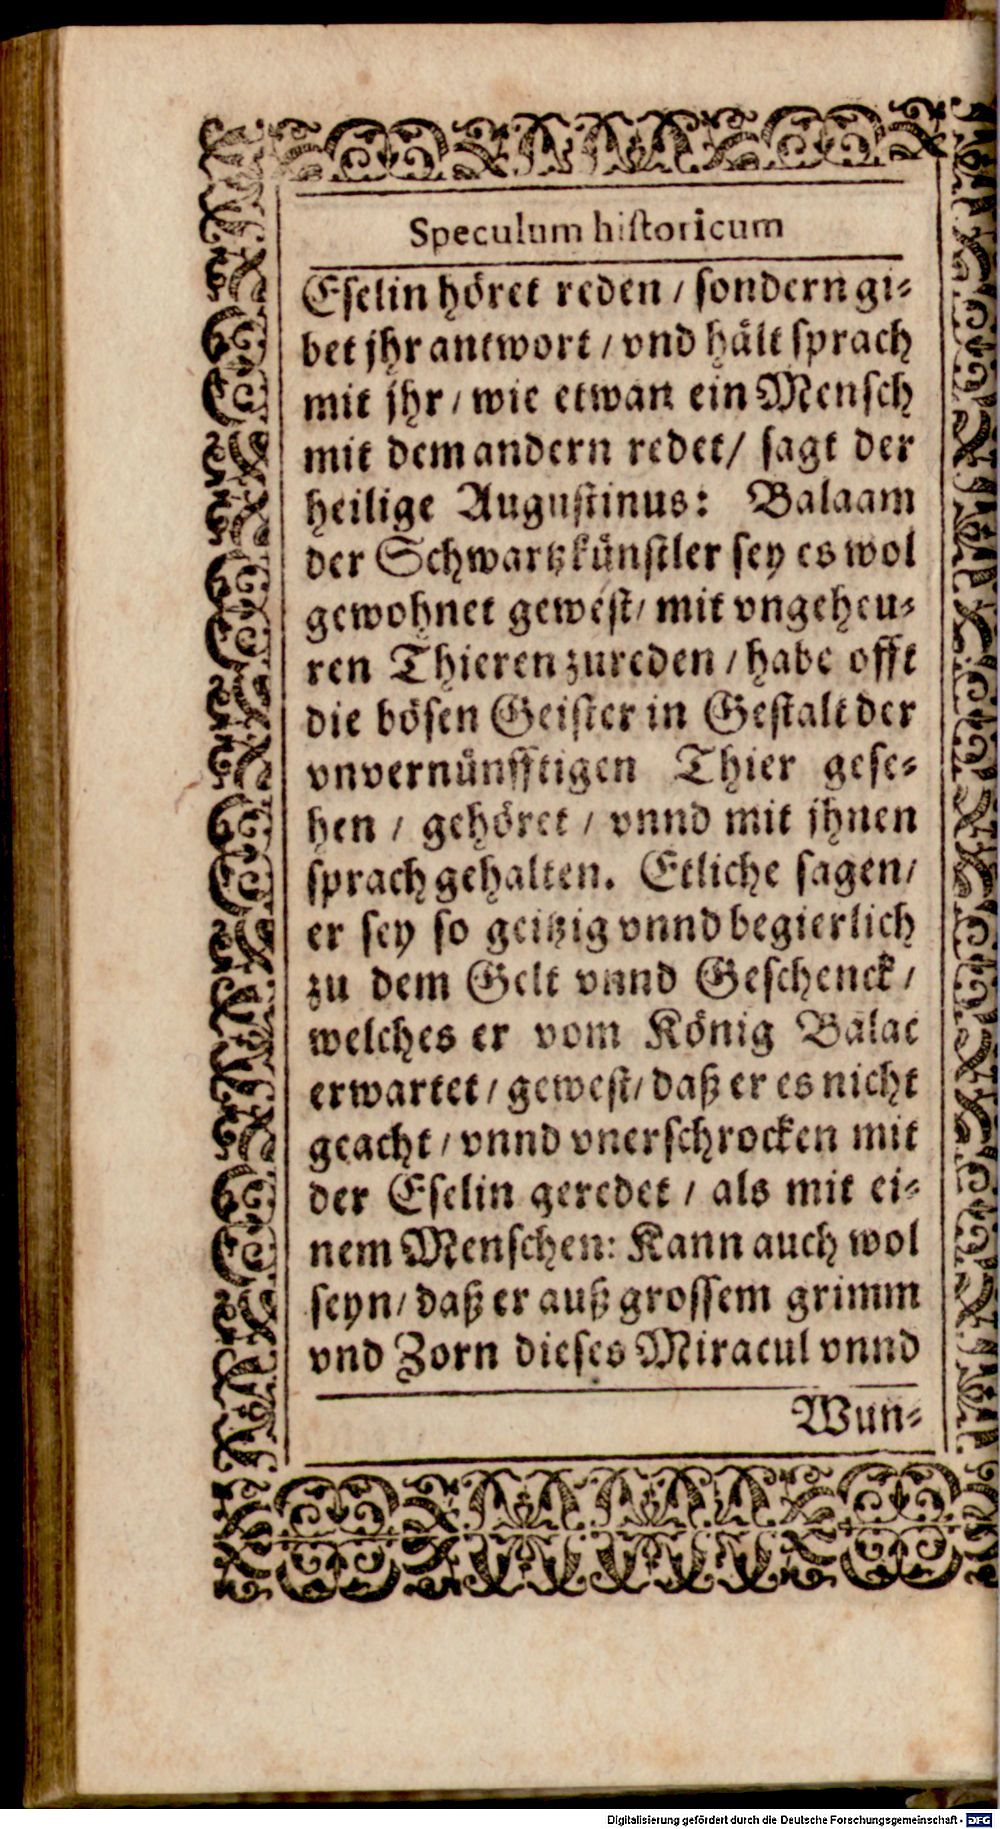 Speculum hiſtoricum
Eſelin höret reden / ſondern gi⸗
bet jhr antwort / vnd hält ſprach
mit jhr / wie etwan ein Menſch
mit dem andern redet / ſagt der
heilige Auguſtinus: Balaam
der Schwartzkünſtler ſey es wol
gewohnet geweſt / mit vngeheu⸗
ren Thieren zureden / habe offt
die böſen Geiſter in Geſtalt der
vnvernünfftigen Thier geſe⸗
hen / gehöret / vnnd mit jhnen
ſprach gehalten. Etliche ſagen /
er ſey ſo geitzig vnnd begierlich
zu dem Gelt vnnd Geſchenck /
welches er vom König Balac
erwartet / geweſt / daß er es nicht
geacht / vnnd vnerſchrocken mit
der Eſelin geredet / als mit ei⸗
nem Menſchen: Kann auch wol
ſeyn / daß er auß groſſem grimm
vnd Zorn dieſes Miracul vnnd
Wun⸗
Digitalisierung gefördert durch die Deutsche Forschungsgemeinschaft - DFG